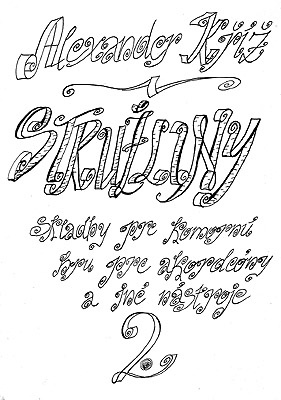 Alexander Kříž
STRUŽLINY
skladby pre komornú
hru pre akordeóny
a iné nástroje
2